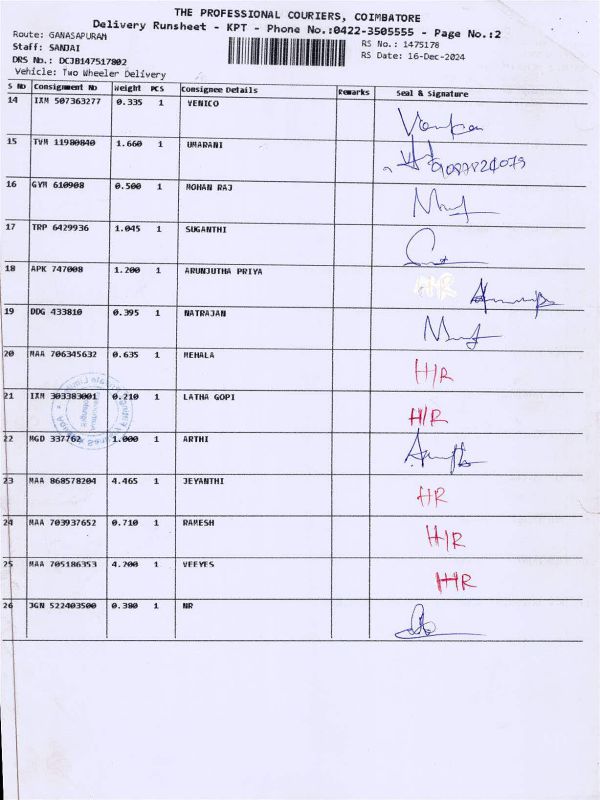 THE PROFESSIONAL COURIERS, COIMBATORE
Delivery Runsheet - KPT - Phone No.:0422-3505555 - Page No.:2
Route: GANASAPURAM
RS No.: 1475178
Staff: SANJAI
RS Date: 16-Dec-2024
DRS No.: DCJB147517802
Vehicle: Two Wheeler Delivery
S No Consignment No Weight PCS Consignee Details Remarks Seal & Signature
14 IXM 507363277 0.335 1 VENICO
15 TVM 11980840 1.660 1 UMARANI 9087824073
16 GYM 610908 0.500 1 MOHAN RAJ
17 TRP 6429936 1.045 1 SUGANTHI
18 APK 747008 1.200 1 ARUNJUTHA PRIYA
19 DDG 433810 0.395 1 NATRAJAN
20 MAA 706345632 0.635 1 MEHALA H/R
21 IXM 303383001 0.210 1 LATHA GOPI H/R
22 MGD 337762 1.000 1 ARTHI
23 MAA 868578204 4.465 1 JEYANTHI HR
24 MAA 703937652 0.710 1 RAMESH H/R
25 MAA 705186353 4.200 1 VEEYES HR
26 JGN 522403500 0.380 1 NR